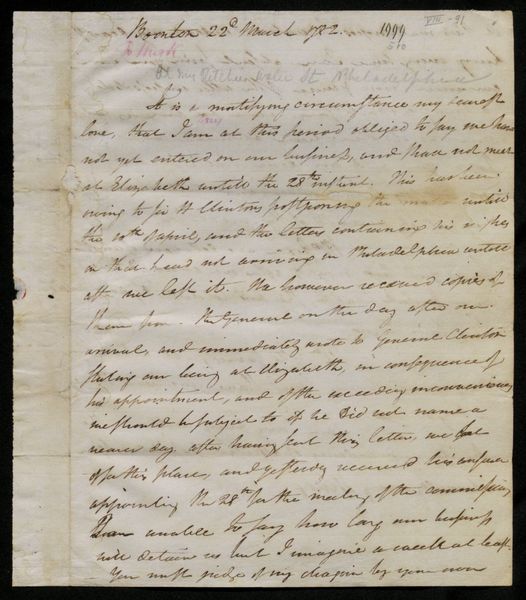 Boonton 22d March 1782. 1999 VIII-91
510
To Mrs K
at Philadelphia
It is a mortifying circumstance my dearest
love, that I am at this period obliged to say we have
not yet entered on our business, and shall not meet
at Elizabeth untill the 28th instant. This has been
owing to Sir H Clintons postponing the untill
the 10th of April, and the letters containing his wishes
on that head not arriving in Philadelphia untill
after we left it. We however received copies of
them from the General on the day after our
arrival, and immediately wrote to General Clinton
stating our being at Elizabeth, in consequence of
his appointment, and of the exceeding inconveniency
we should be subject to if he did not name a
nearer day. after having sent this letter, we set
off for this place, and yesterday received his answer
appointing the 28th for the meeting of the commissioners
I am unable to say how long our business
will detain us but I imagine a week at least.
You must judge of my chagrin by your own